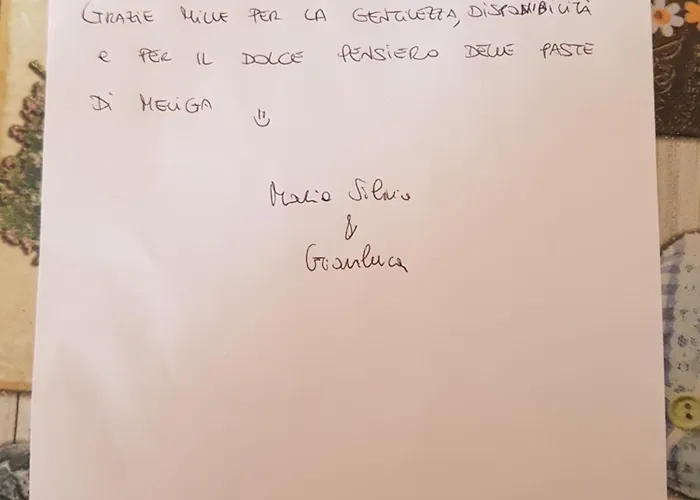 GRAZIE MILLE PER LA GENTILEZZA, DISPONIBILITÀ
e PER IL DOLCE PENSIERO DELLE PASTE
DI MELIGA
Maria Silvia
&
Gianluca